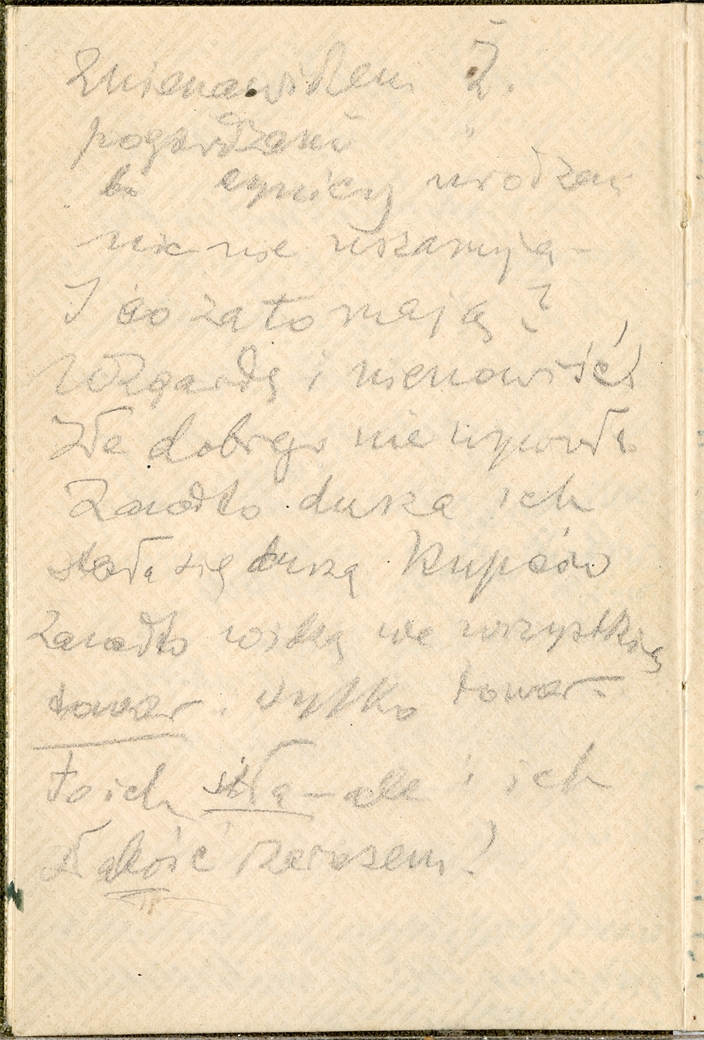 Znienawidzeni Ż.
pogardzani "
bo cynicy urodzeni
nic nie uszanują –
I co za to mają?
Wzgardę i nienawiść!
Źle dobrego nie
Zanadto dusza ich
stała się duszą kupców
Zanadto widzą we wszystkiem
towar. tylko towar –
To ich siła – ale i ich
słabość zarazem!